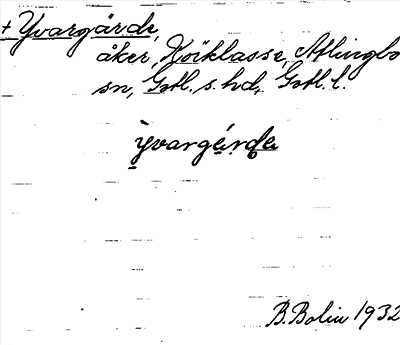 + Yvargärde,
åker, Hoiklasse, Atlingbo
sn, Gotl. s. hd, Gotl. l.
ỳvargárda
B. Bolin 1932